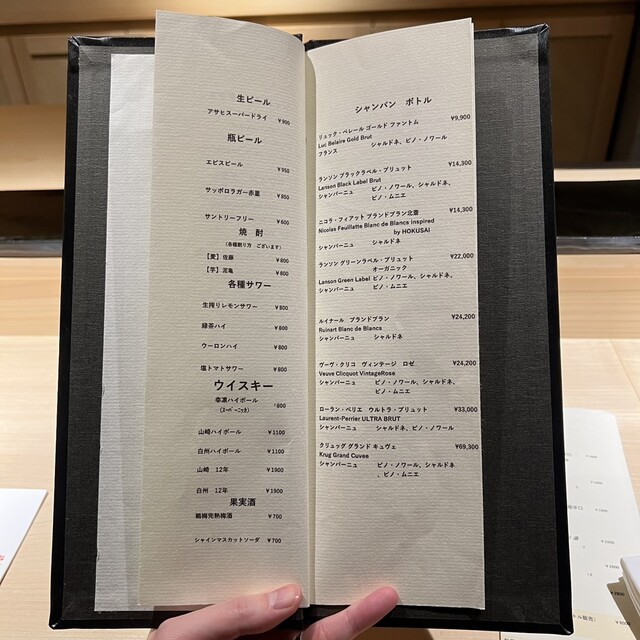 生ビール
アサヒスーパードライ ¥900
瓶ビール
エビスビール ¥950
サッポロラガー赤星 ¥850
サントリーフリー ¥600
焼 酎
(各種割り方 ございます)
【麦】佐藤 ¥800
【芋】泥亀 ¥800
各種サワー
生搾りレモンサワー ¥800
緑茶ハイ ¥800
ウーロンハイ ¥800
塩トマトサワー ¥800
ウイスキー
幸凛ハイボール ¥800
山崎ハイボール ¥1100
白州ハイボール ¥1100
山崎 12年 ¥1900
白州 12年 ¥1900
果実酒
鶴梅完熟梅酒 ¥700
シャインマスカットソーダ ¥700
シャンパン ボトル
リュック・ベレール ゴールド ファントム ¥9,900
Luc Belaire Gold Brut
フランス シャルドネ、ピノ・ノワール
ランソン ブラックラベル・ブリュット ¥14,300
Lanson Black Label Brut
シャンパーニュ ピノ・ノワール、シャルドネ、
ピノ・ムニエ
ニコラ・フィアット ブランドブラン北斎 ¥14,300
Nicolas Feuillatte Blanc de Blancs inspired
by HOKUSAI
シャンパーニュ シャルドネ
ランソン グリーンラベル・ブリュット ¥22,000
オーガニック
Lanson Green Label ピノ・ノワール、シャルドネ、
シャンパーニュ ピノ・ムニエ
ルイナール ブランドブラン ¥24,200
Ruinart Blanc de Blancs
シャンパーニュ シャルドネ
ヴーヴ・クリコ ヴィンテージ ロゼ ¥24,200
Veuve Clicquot VintageRose
シャンパーニュ ピノ・ノワール、シャルドネ、
ピノ・ムニエ
ローラン・ペリエ ウルトラ・ブリュット ¥33,000
Laurent-Perrier ULTRA BRUT
シャンパーニュ シャルドネ、ピノ・ノワール
クリュッグ グランド キュヴェ ¥69,300
Krug Grand Cuvee
シャンパーニュ ピノ・ノワール、シャルドネ
、ピノ・ムニエ